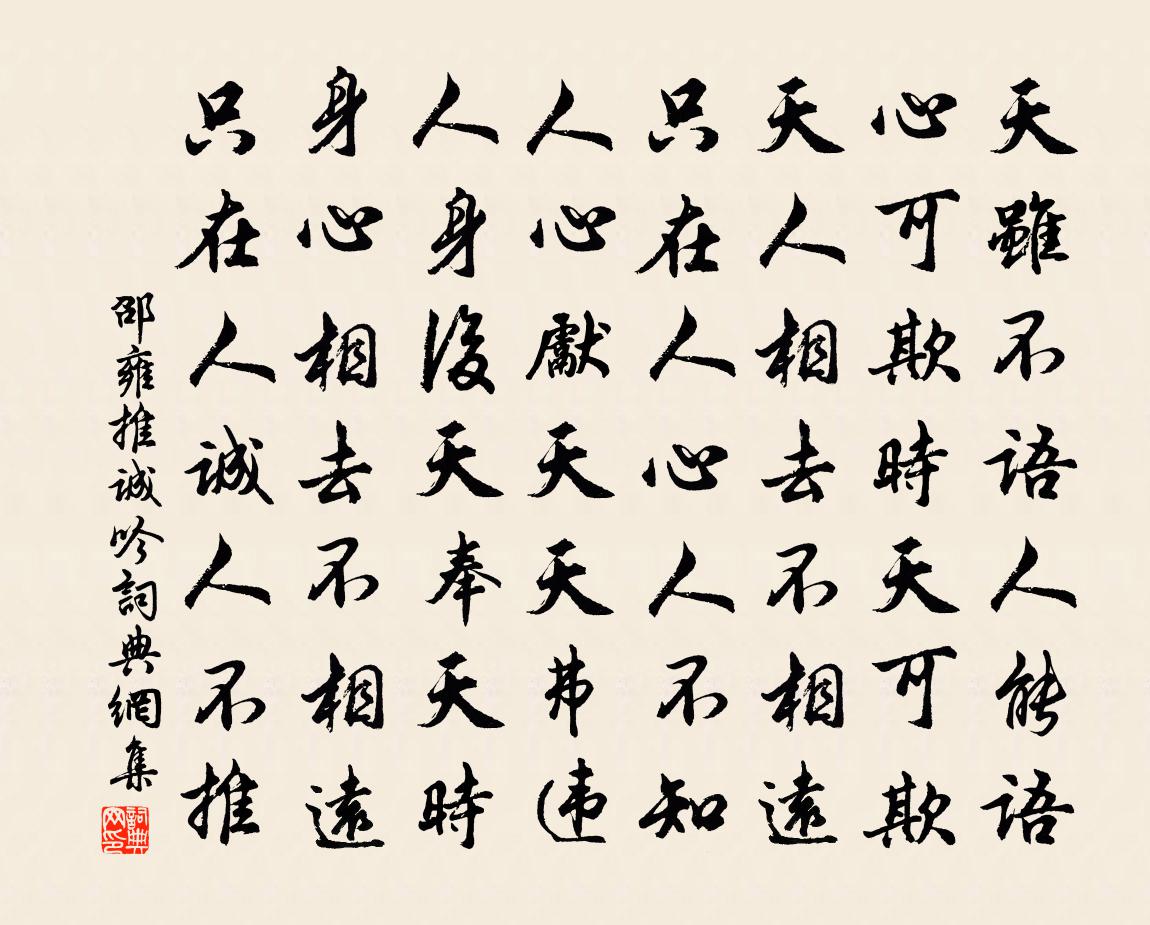 天雖不語人能語
心可欺時天可欺
天人相去不相遠
只在人心人不知
人心獻天天弗違
人身後天奉天時
身心相去不相遠
只在人誠人不推
邵雍推誠吟詞典網集
詞典网印